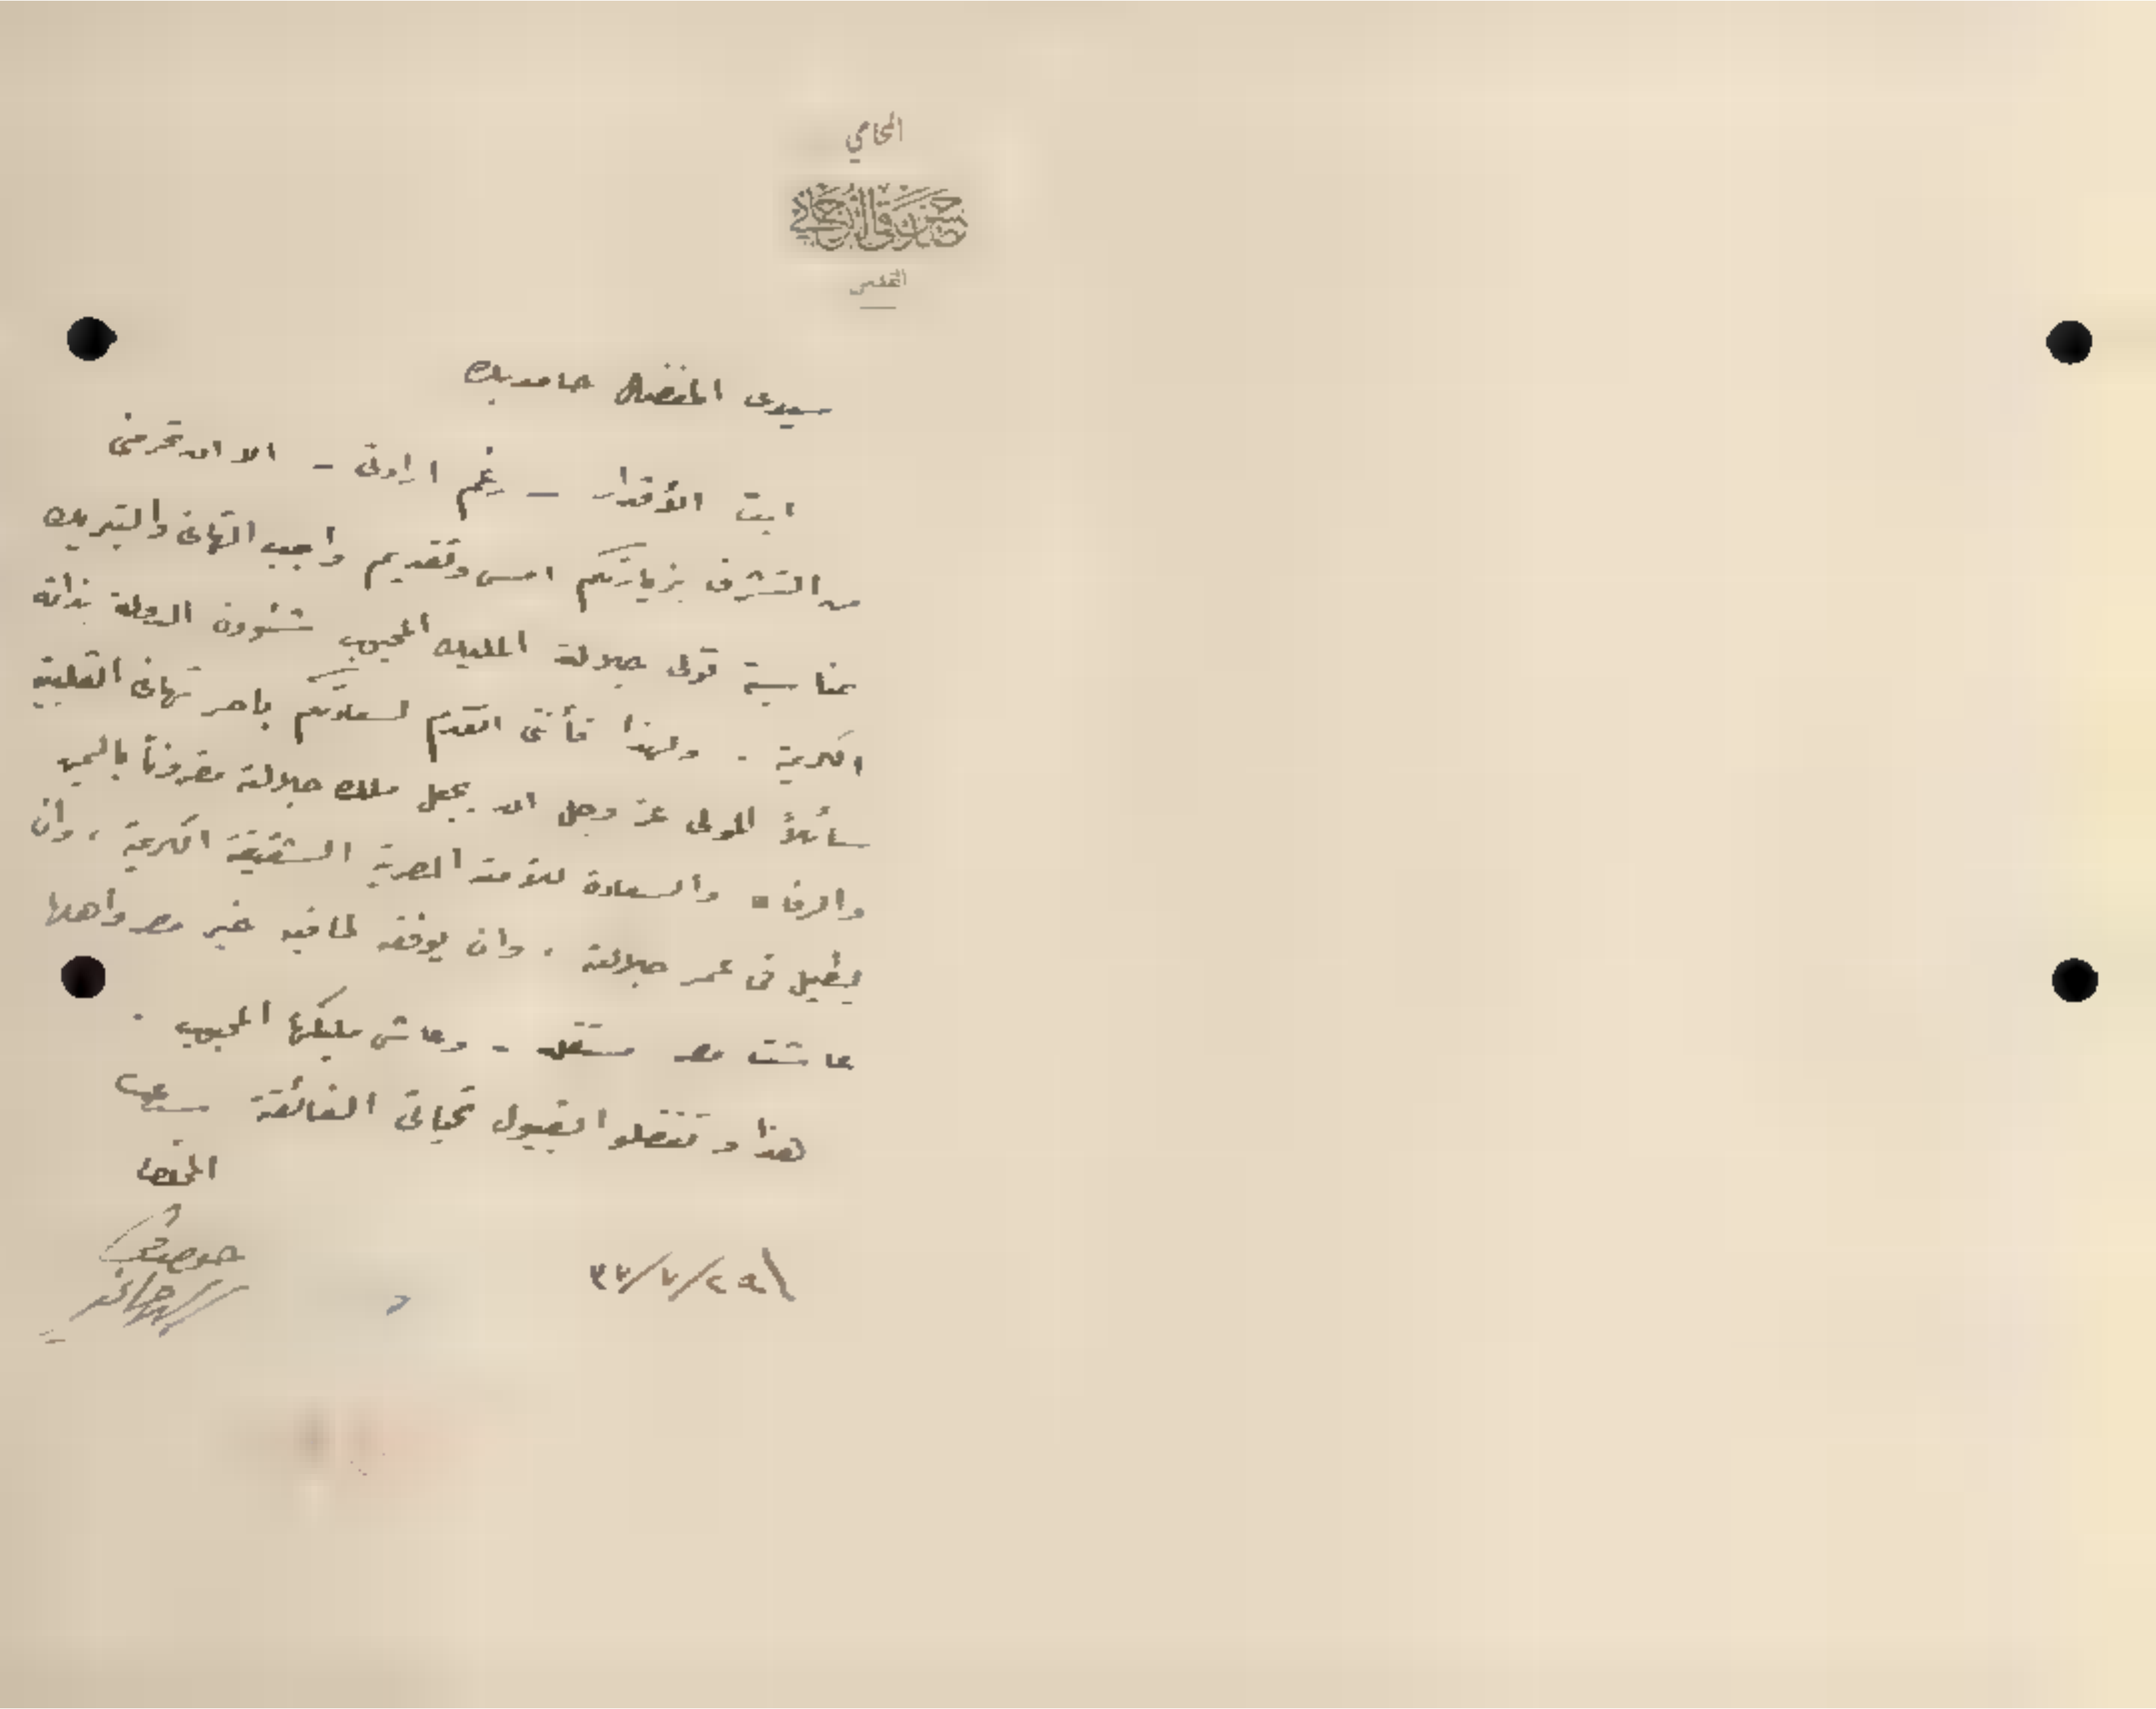 المحامي
القدس
سيدى المفضال حامد بك
ابت الأقدار — رغم ارادتى — الا ان تحرمنى
من التشرف بزيارتكم امس وتقديم واجب التهانى والتبريك
بمناسبة تولى جلالة المليك المحبوب شئوون الدولة بذاته
الكريمة . ولهذا فأننى اتقدم لسعادتكم بأحر تهانى القلبية
سائلاً المولى عز وجل ان يجعل ملك جلالته مقروناً باليمن
والرفاه والسعادة للأمة المصرية الشقيقة الكريمة ، وان
يطيل فى عمر جلالته ، وان يوفقه لما فيه خير مصر وأهلها
عاشت مصر مستقلة - وعاش مليكها المحبوب .
هذا وتفضلوا بقبول تحياتى الفائقة سيدى
المخلص
٢٩/٧/٣٧